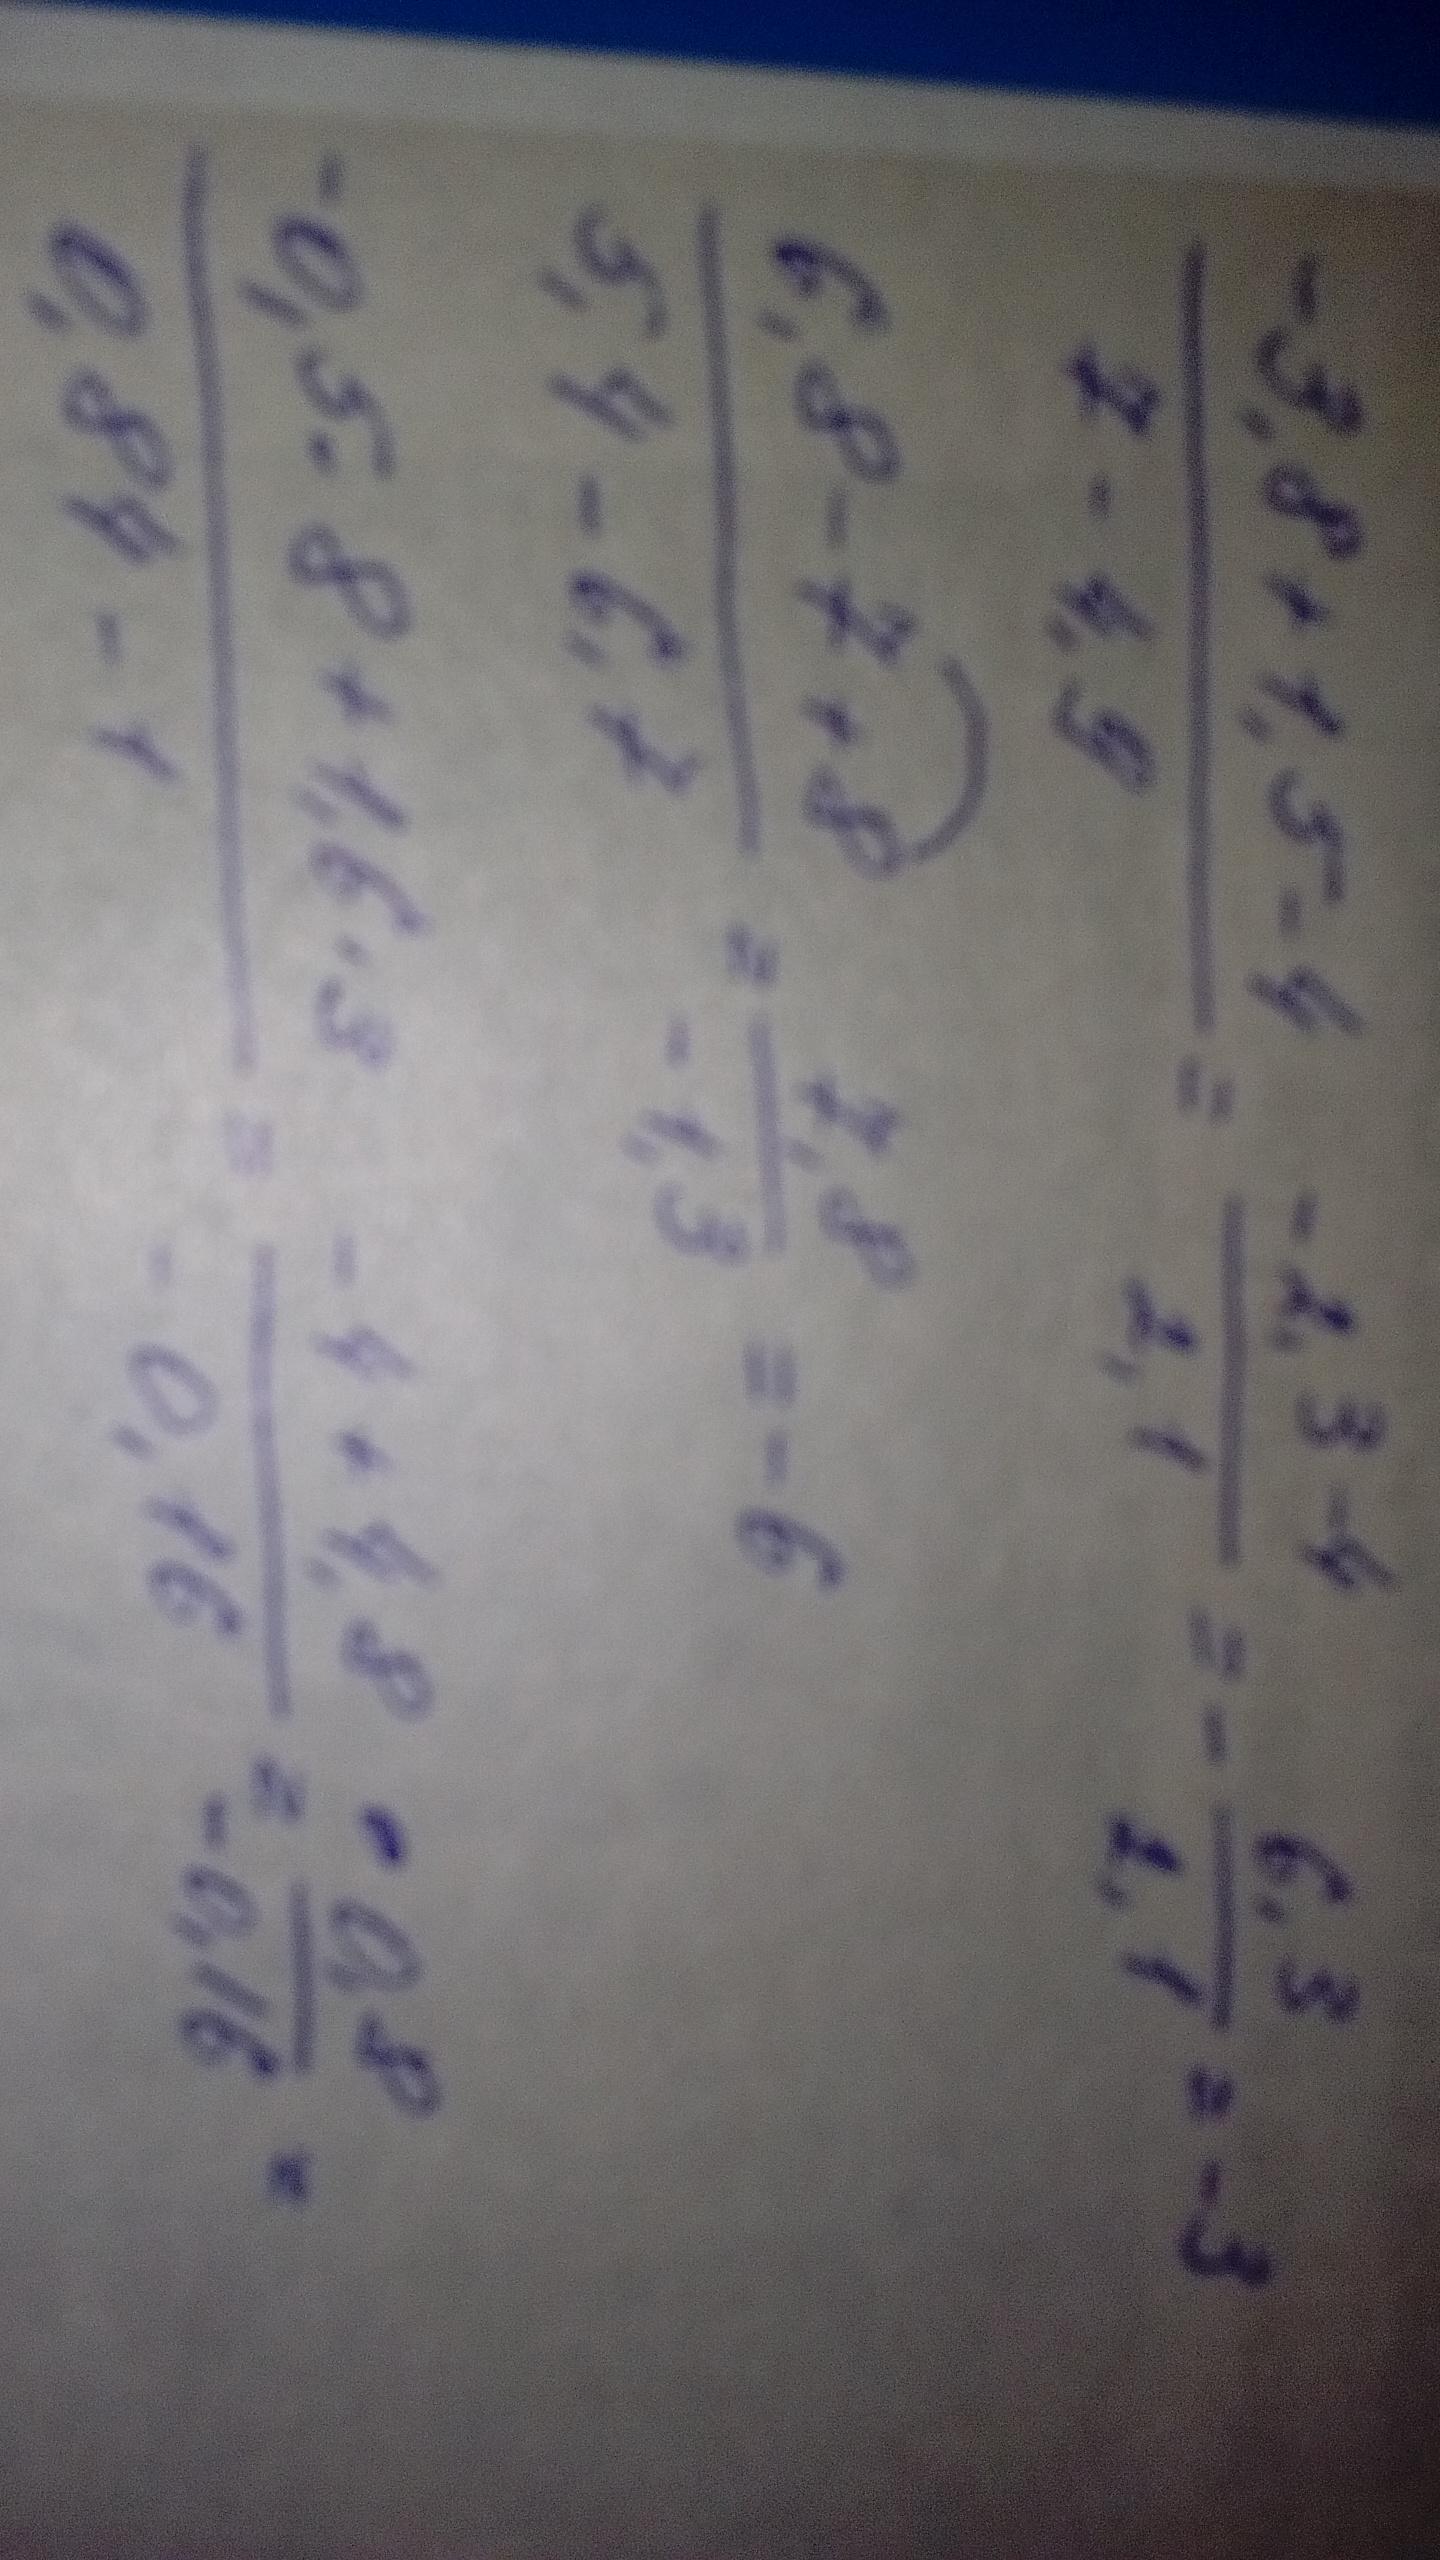 -3,8+1,5-4 / 7-4,9 = -2,3-4 / 2,1 = - 6,3 / 2,1 = -3
6,8-7+8 / 5,4-6,7 = 7,8 / -1,3 = -6
-0,5·8+1,6·3 / 0,84-1 = -4+4,8 / -0,16 = 0,8 / -0,16 =